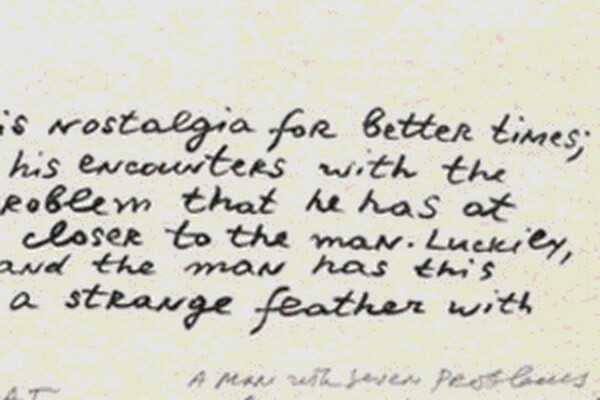 is nostalgia for better times;
his encounters with the
roblem that he has at
closer to the man. Luckily,
and the man has this
a strange feather with
A man with seven problems
AT